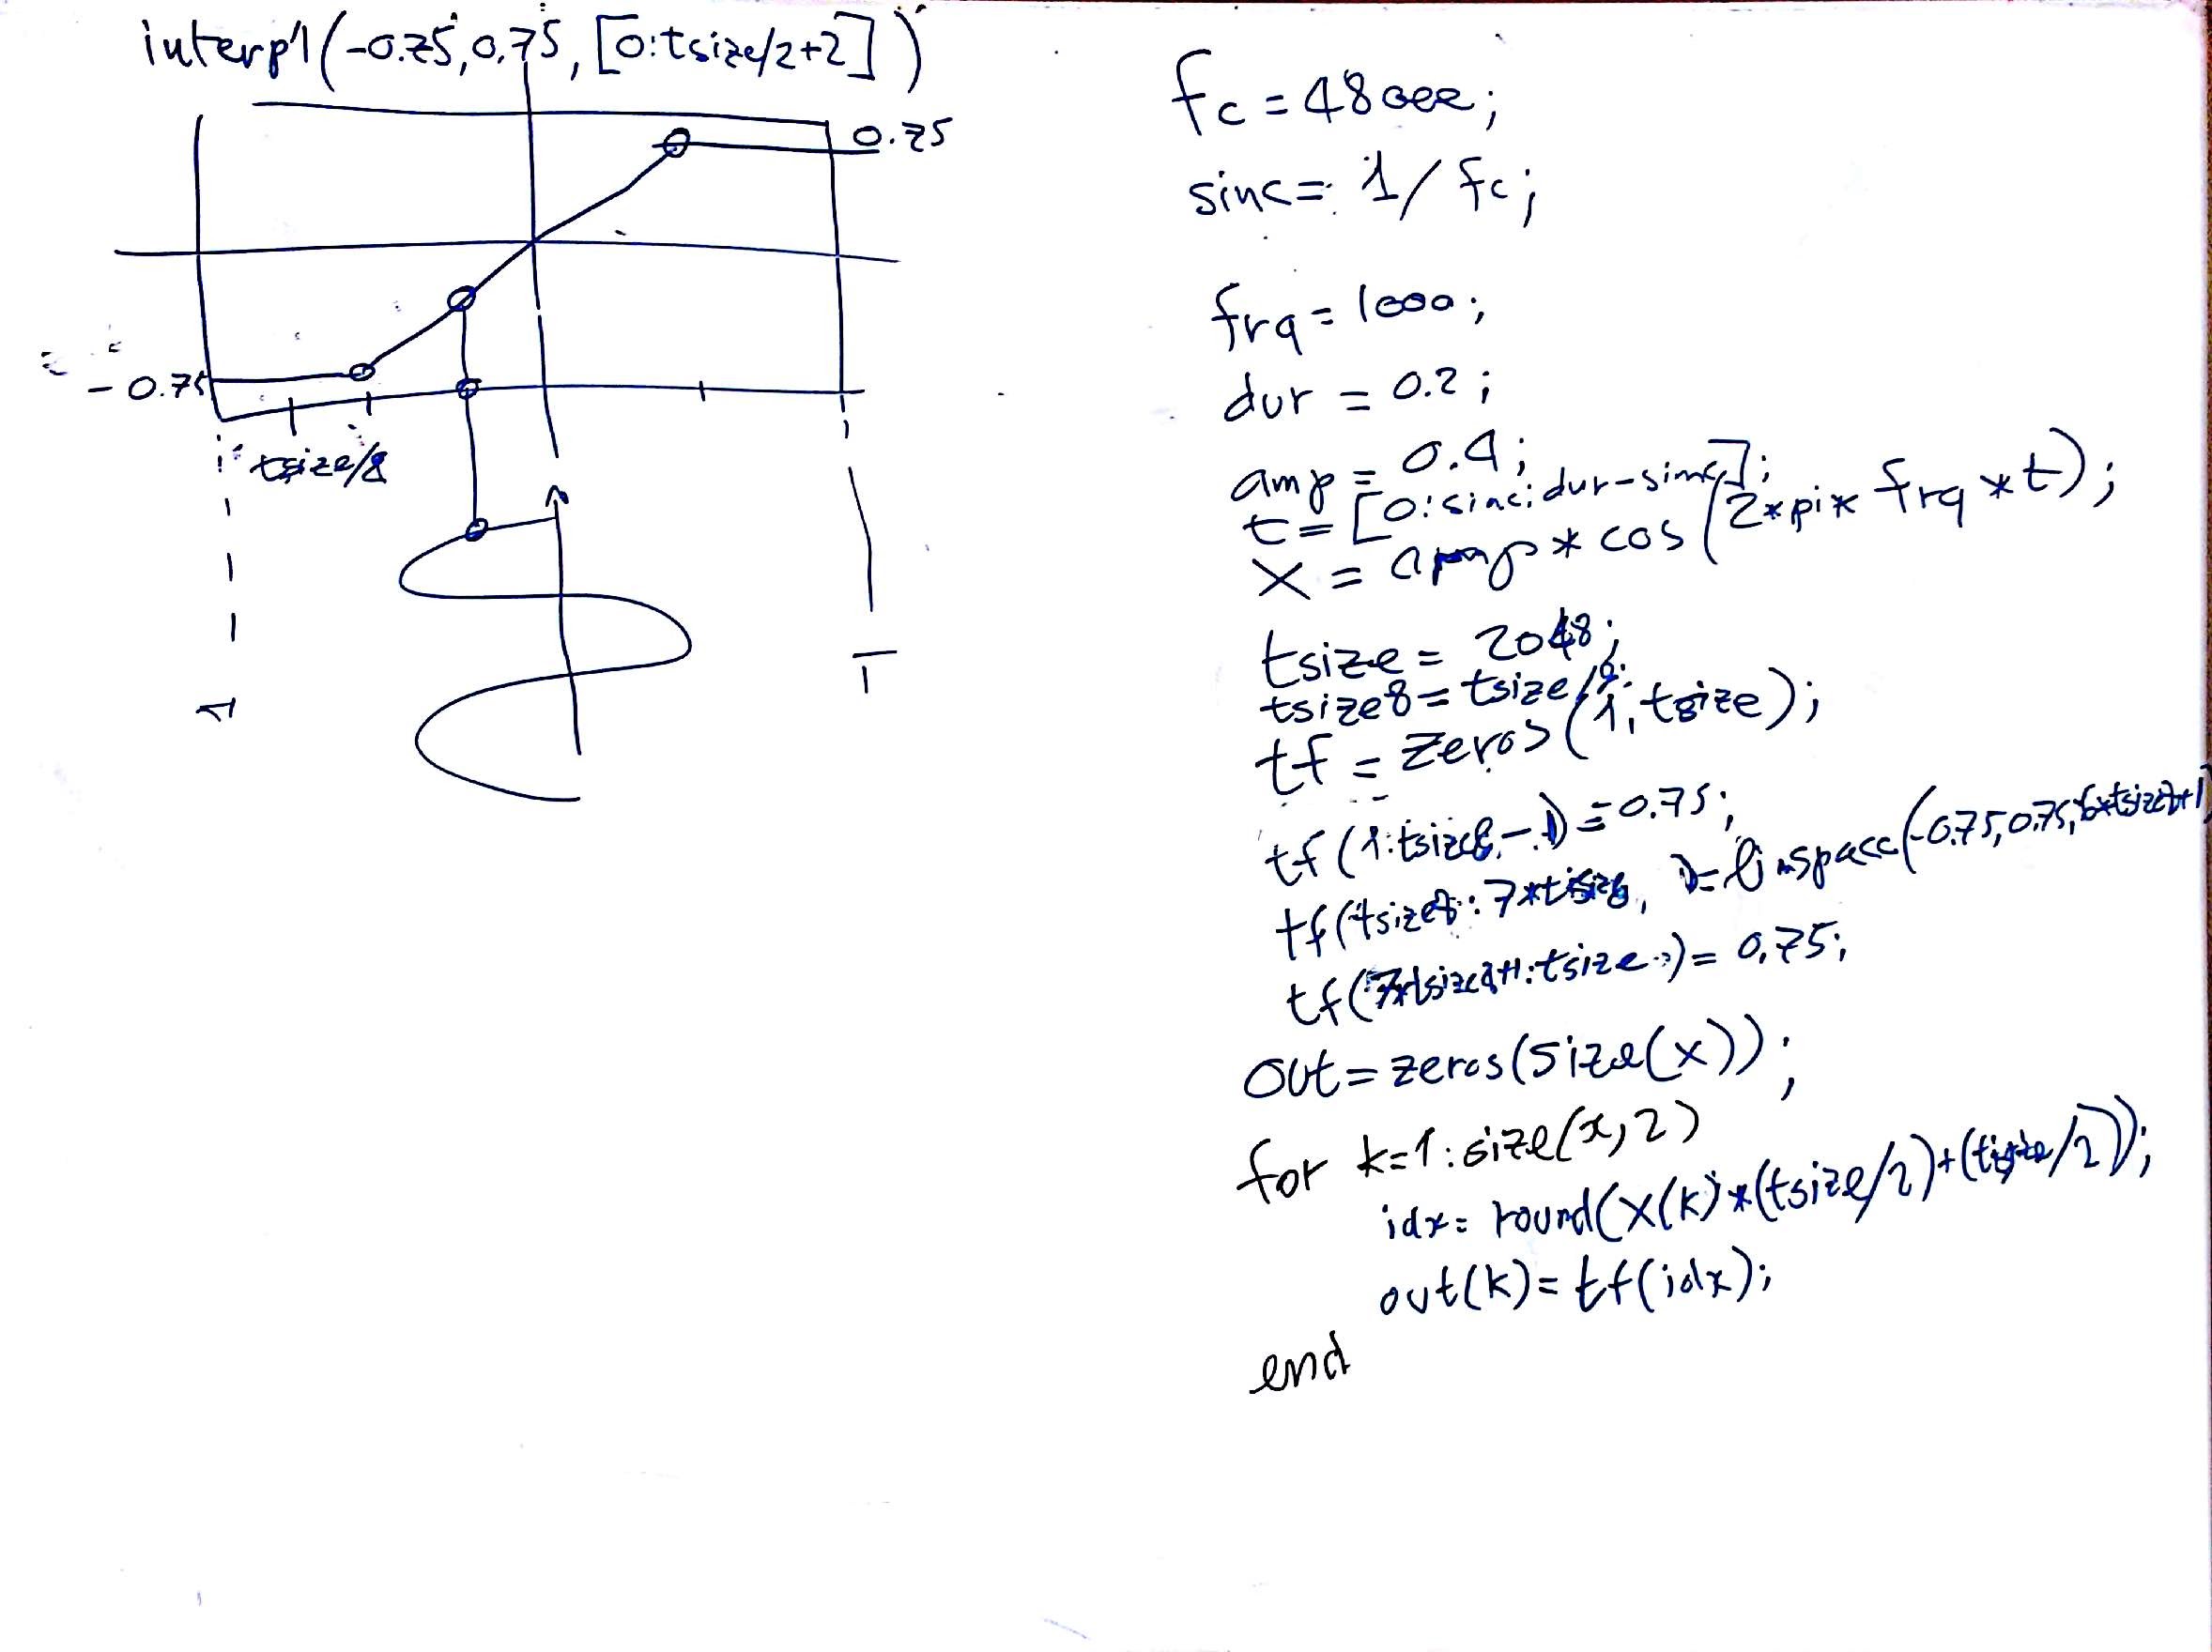 interp1(-0.75,0.75,[0:tsize/2+2])
0.75
-0.75
tsize/8
fc=48000;
sinc=1/fc;
frq=1000;
dur=0.2;
amp=0.4;
t=[0:sinc:dur-sinc];
x=amp*cos(2*pi*frq*t);
tsize=2048;
tsize8=tsize/8;
tf=zeros(1,tsize);
tf(1:tsize8-1)=0.75;
tf(tsize8:7*tsize8)=linspace(-0.75,0.75,6*tsize8+1
tf(7*tsize8+1:tsize)=0.75;
out=zeros(size(x));
for k=1:size(x,2)
idx=round(x(k)*(tsize/2)+(tsize/2));
out(k)=tf(idx);
end